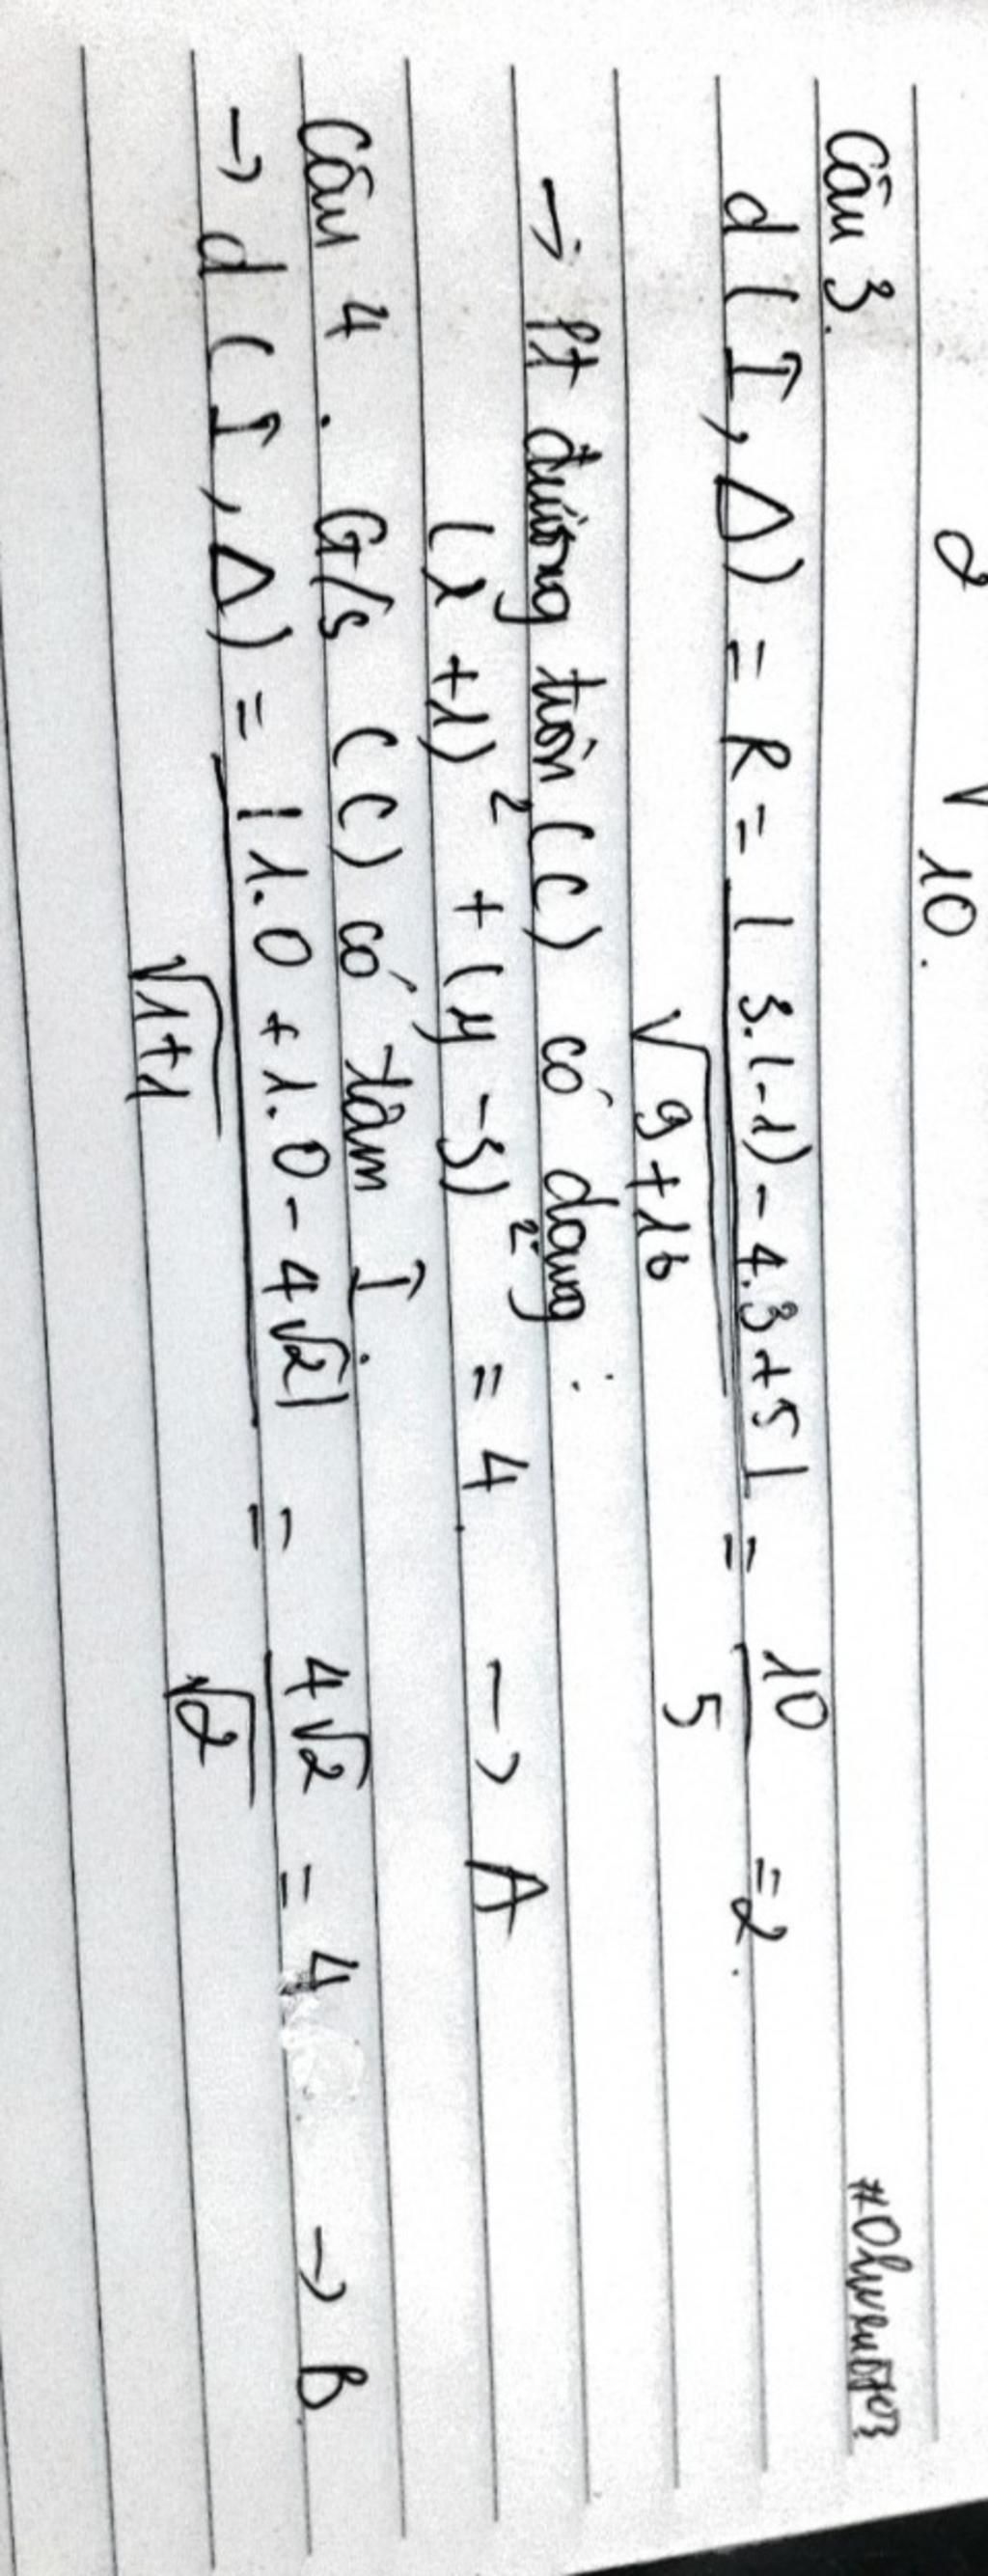 2 √10.
Câu 3.
d(I,Δ) = R = |3.(-1) - 4.3 + 5| / √9+16 = 10/5 = 2.
→ pt đường tròn (C) có dạng:
(x+1)² + (y-3)² = 4. → A
Câu 4. G/s (C) có tâm I.
→ d(I,Δ) = |1.0 + 1.0 - 4√2| / √1+1 = 4√2/√2 = 4 → B